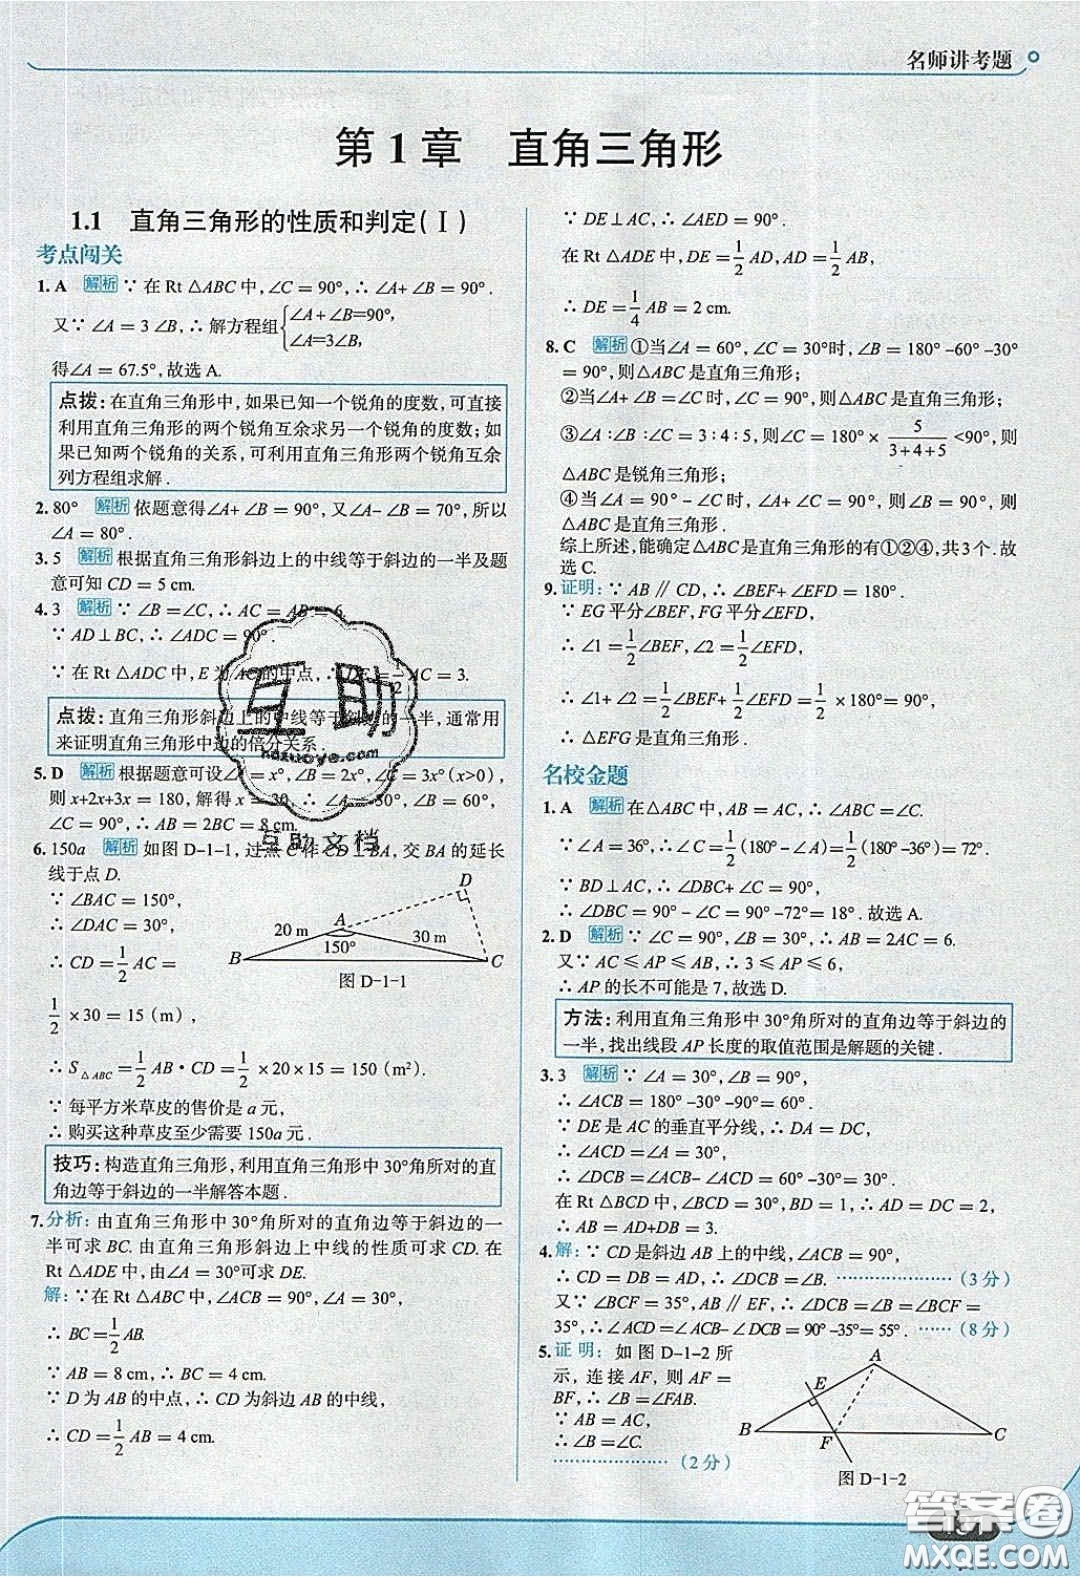 名师讲考题
第1章 直角三角形
1.1 直角三角形的性质和判定(Ⅰ)
考点闯关
1. A 解析 ∵ 在 Rt △ABC 中,∠C = 90°,∴ ∠A+ ∠B = 90°.
又∵ ∠A = 3 ∠B,∴ 解方程组{∠A + ∠B=90°,
∠A=3∠B,
得∠A = 67.5°,故选 A.
点拨:在直角三角形中,如果已知一个锐角的度数,可直接
利用直角三角形的两个锐角互余求另一个锐角的度数;如
果已知两个锐角的关系,可利用直角三角形两个锐角互余
列方程组求解.
2. 80° 解析 依题意得∠A+ ∠B = 90°,又∠A- ∠B = 70°,所以
∠A = 80°.
3. 5 解析 根据直角三角形斜边上的中线等于斜边的一半及题
意可知 CD = 5 cm.
4. 3 解析 ∵ ∠B =∠C,∴ AC = AB = 6.
∵ AD⊥BC,∴ ∠ADC = 90°.
∵ 在 Rt △ADC 中,E 为 AC 的中点,∴ DE = 1/2 AC = 3.
点拨:直角三角形斜边上的中线等于斜边的一半,通常用
来证明直角三角形中边的倍分关系.
5. D 解析 根据题意可设∠A = x°,∠B = 2x°,∠C = 3x°(x>0),
则 x+2x+3x = 180,解得 x = 30,∴ ∠A = 30°,∠B = 60°,
∠C = 90°,∴ AB = 2BC = 8 cm.
6. 150a 解析 如图 D-1-1,过点 C 作 CD⊥BA,交 BA 的延长
线于点 D.
∵ ∠BAC = 150°,
∴ ∠DAC = 30°,
∴ CD = 1/2 AC =
1/2 ×30 = 15 (m),
D
20 m
A
30 m
150°
B
C
图 D-1-1
∴ S△ABC = 1/2 AB·CD = 1/2 ×20×15 = 150 (m²).
∵ 每平方米草皮的售价是 a 元,
∴ 购买这种草皮至少需要 150a 元.
技巧:构造直角三角形,利用直角三角形中 30°角所对的直
角边等于斜边的一半解答本题.
7. 分析:由直角三角形中 30°角所对的直角边等于斜边的一
半可求 BC. 由直角三角形斜边上中线的性质可求 CD. 在
Rt △ADE 中,由∠A = 30°可求 DE.
解:∵在 Rt △ABC 中,∠ACB = 90°,∠A = 30°,
∴ BC= 1/2 AB.
∵ AB = 8 cm,∴ BC = 4 cm.
∵ D 为 AB 的中点,∴ CD 为斜边 AB 的中线,
∴ CD = 1/2 AB = 4 cm.
∵ DE⊥AC,∴ ∠AED = 90°.
在 Rt △ADE 中,DE = 1/2 AD,AD = 1/2 AB,
∴ DE = 1/4 AB = 2 cm.
8. C 解析 ①当∠A = 60°,∠C = 30°时,∠B = 180° -60° -30°
= 90°,则△ABC 是直角三角形;
②当∠A+ ∠B =∠C 时,∠C = 90°,则△ABC 是直角三角形;
③∠A ∶∠B ∶∠C = 3∶4∶5,则∠C = 180°× 5/(3+4+5) <90°,则
△ABC 是锐角三角形;
④当∠A = 90° - ∠C 时,∠A + ∠C = 90°,则∠B = 90°,则
△ABC 是直角三角形.
综上所述,能确定△ABC 是直角三角形的有①②④,共 3 个. 故
选 C.
9. 证明:∵ AB ∥ CD,∴ ∠BEF+ ∠EFD = 180°.
∵ EG 平分∠BEF,FG 平分∠EFD,
∴ ∠1 = 1/2 ∠BEF,∠2 = 1/2 ∠EFD,
∴ ∠1+ ∠2 = 1/2 ∠BEF+ 1/2 ∠EFD = 1/2 ×180°= 90°,
∴ △EFG 是直角三角形.
名校金题
1. A 解析 在△ABC 中,AB = AC,∴ ∠ABC =∠C.
∵ ∠A = 36°,∴ ∠C = 1/2 (180°-∠A)= 1/2 (180°-36°)= 72°.
∵ BD⊥AC,∴ ∠DBC+ ∠C = 90°,
∴ ∠DBC = 90° - ∠C = 90° -72°= 18°. 故选 A.
2. D 解析 ∵ ∠C = 90°,∠B = 30°,∴ AB = 2AC = 6.
又∵ AC ⩽ AP ⩽ AB,∴ 3 ⩽ AP ⩽ 6,
∴ AP 的长不可能是 7,故选 D.
方法:利用直角三角形中 30°角所对的直角边等于斜边的
一半,找出线段 AP 长度的取值范围是解题的关键.
3. 3 解析 ∵ ∠A = 30°,∠B = 90°,
∴ ∠ACB = 180° -30° -90°= 60°.
∵ DE 是 AC 的垂直平分线,∴ DA = DC,
∴ ∠ACD =∠A = 30°,
∴ ∠DCB =∠ACB- ∠ACD = 60°-30°= 30°.
在 Rt △BCD 中,∠BCD = 30°,BD = 1,∴ AD = DC = 2,
∴ AB = AD+DB = 3.
4. 解:∵ CD 是斜边 AB 上的中线,∠ACB = 90°,
∴ CD = DB = AD,∴ ∠DCB =∠B. …………………… (3 分)
又∵ ∠BCF = 35°,AB ∥ EF,∴ ∠DCB =∠B =∠BCF =
35°,∴ ∠ACD =∠ACB- ∠DCB = 90°-35°= 55°. …… (8 分)
5. 证明:如图 D-1-2 所
示,连接 AF,则 AF =
BF,∴ ∠B =∠FAB.
∵ AB = AC,
∴ ∠B =∠C.
…………………… (2 分)
A
E
B
F
C
图 D-1-2
互助
hezuoye.com
互助文档
答案圈
MXQE.COM